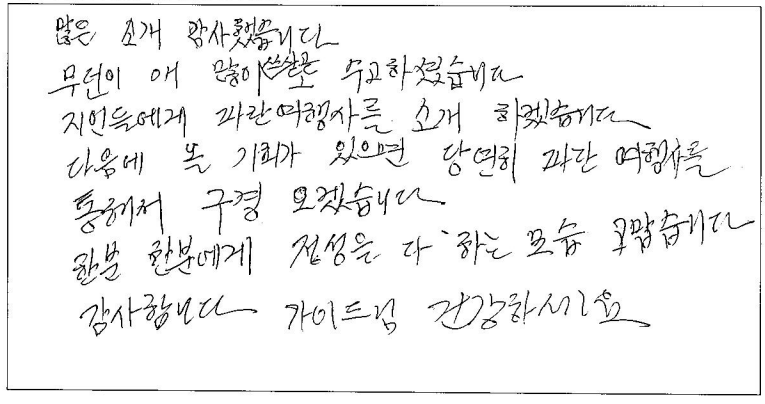 많은 소개 감사했습니다
무던이 애 많이 쓰신 수고하셨습니다
지인들에게 파란여행사를 소개 하겠습니다
다음에 올 기회가 있으면 당연히 파란 여행사를
통해서 구경 오겠습니다
한분 한분에게 정성을 다 하는 모습 고맙습니다
감사합니다 가이드님 건강하세요